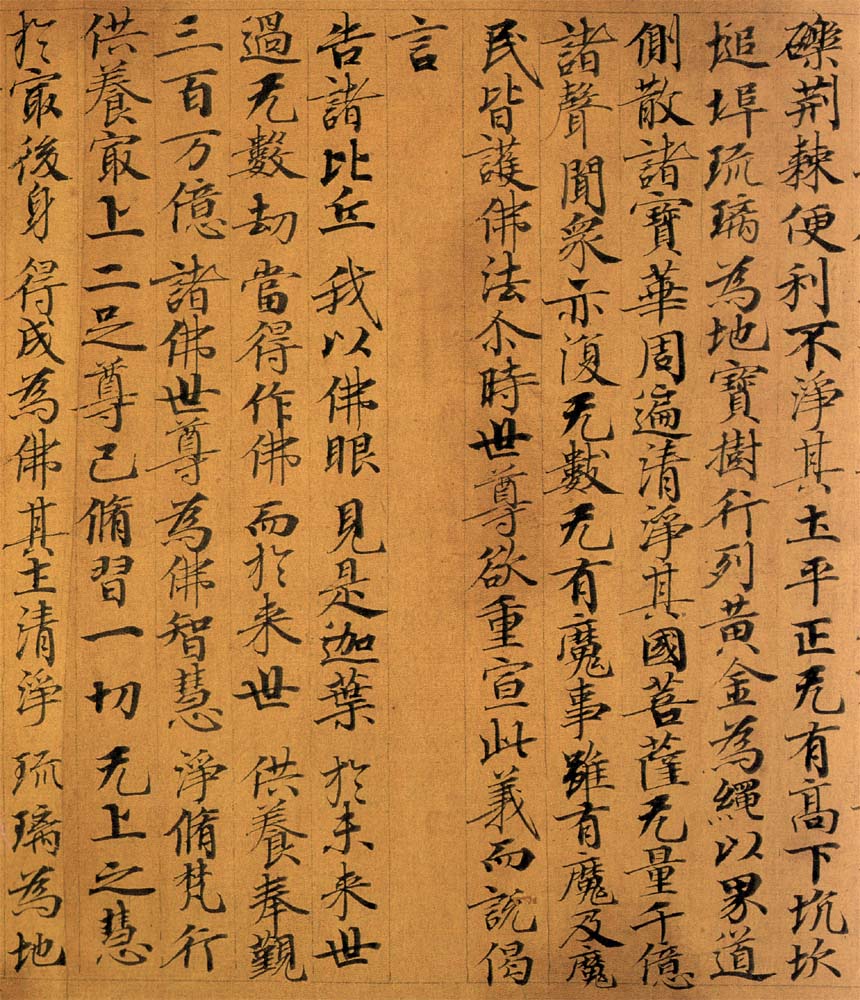 礫荊棘便利不淨其土平正无有高下坑坎
塠埠琉璃為地寶樹行列黃金為繩以界道
側散諸寶華周遍清淨其國菩薩无量千億
諸聲聞衆亦復无數无有魔事雖有魔及魔
民皆護佛法尒時世尊欲重宣此義而說偈
言
告諸比丘 我以佛眼 見是迦葉 於未来世
過无數劫 當得作佛 而於来世 供養奉覲
三百万億 諸佛世尊 為佛智慧 淨脩梵行
供養㝡上 二足尊已 脩習一切 无上之慧
於㝡後身 得成為佛 其土清淨 琉璃為地